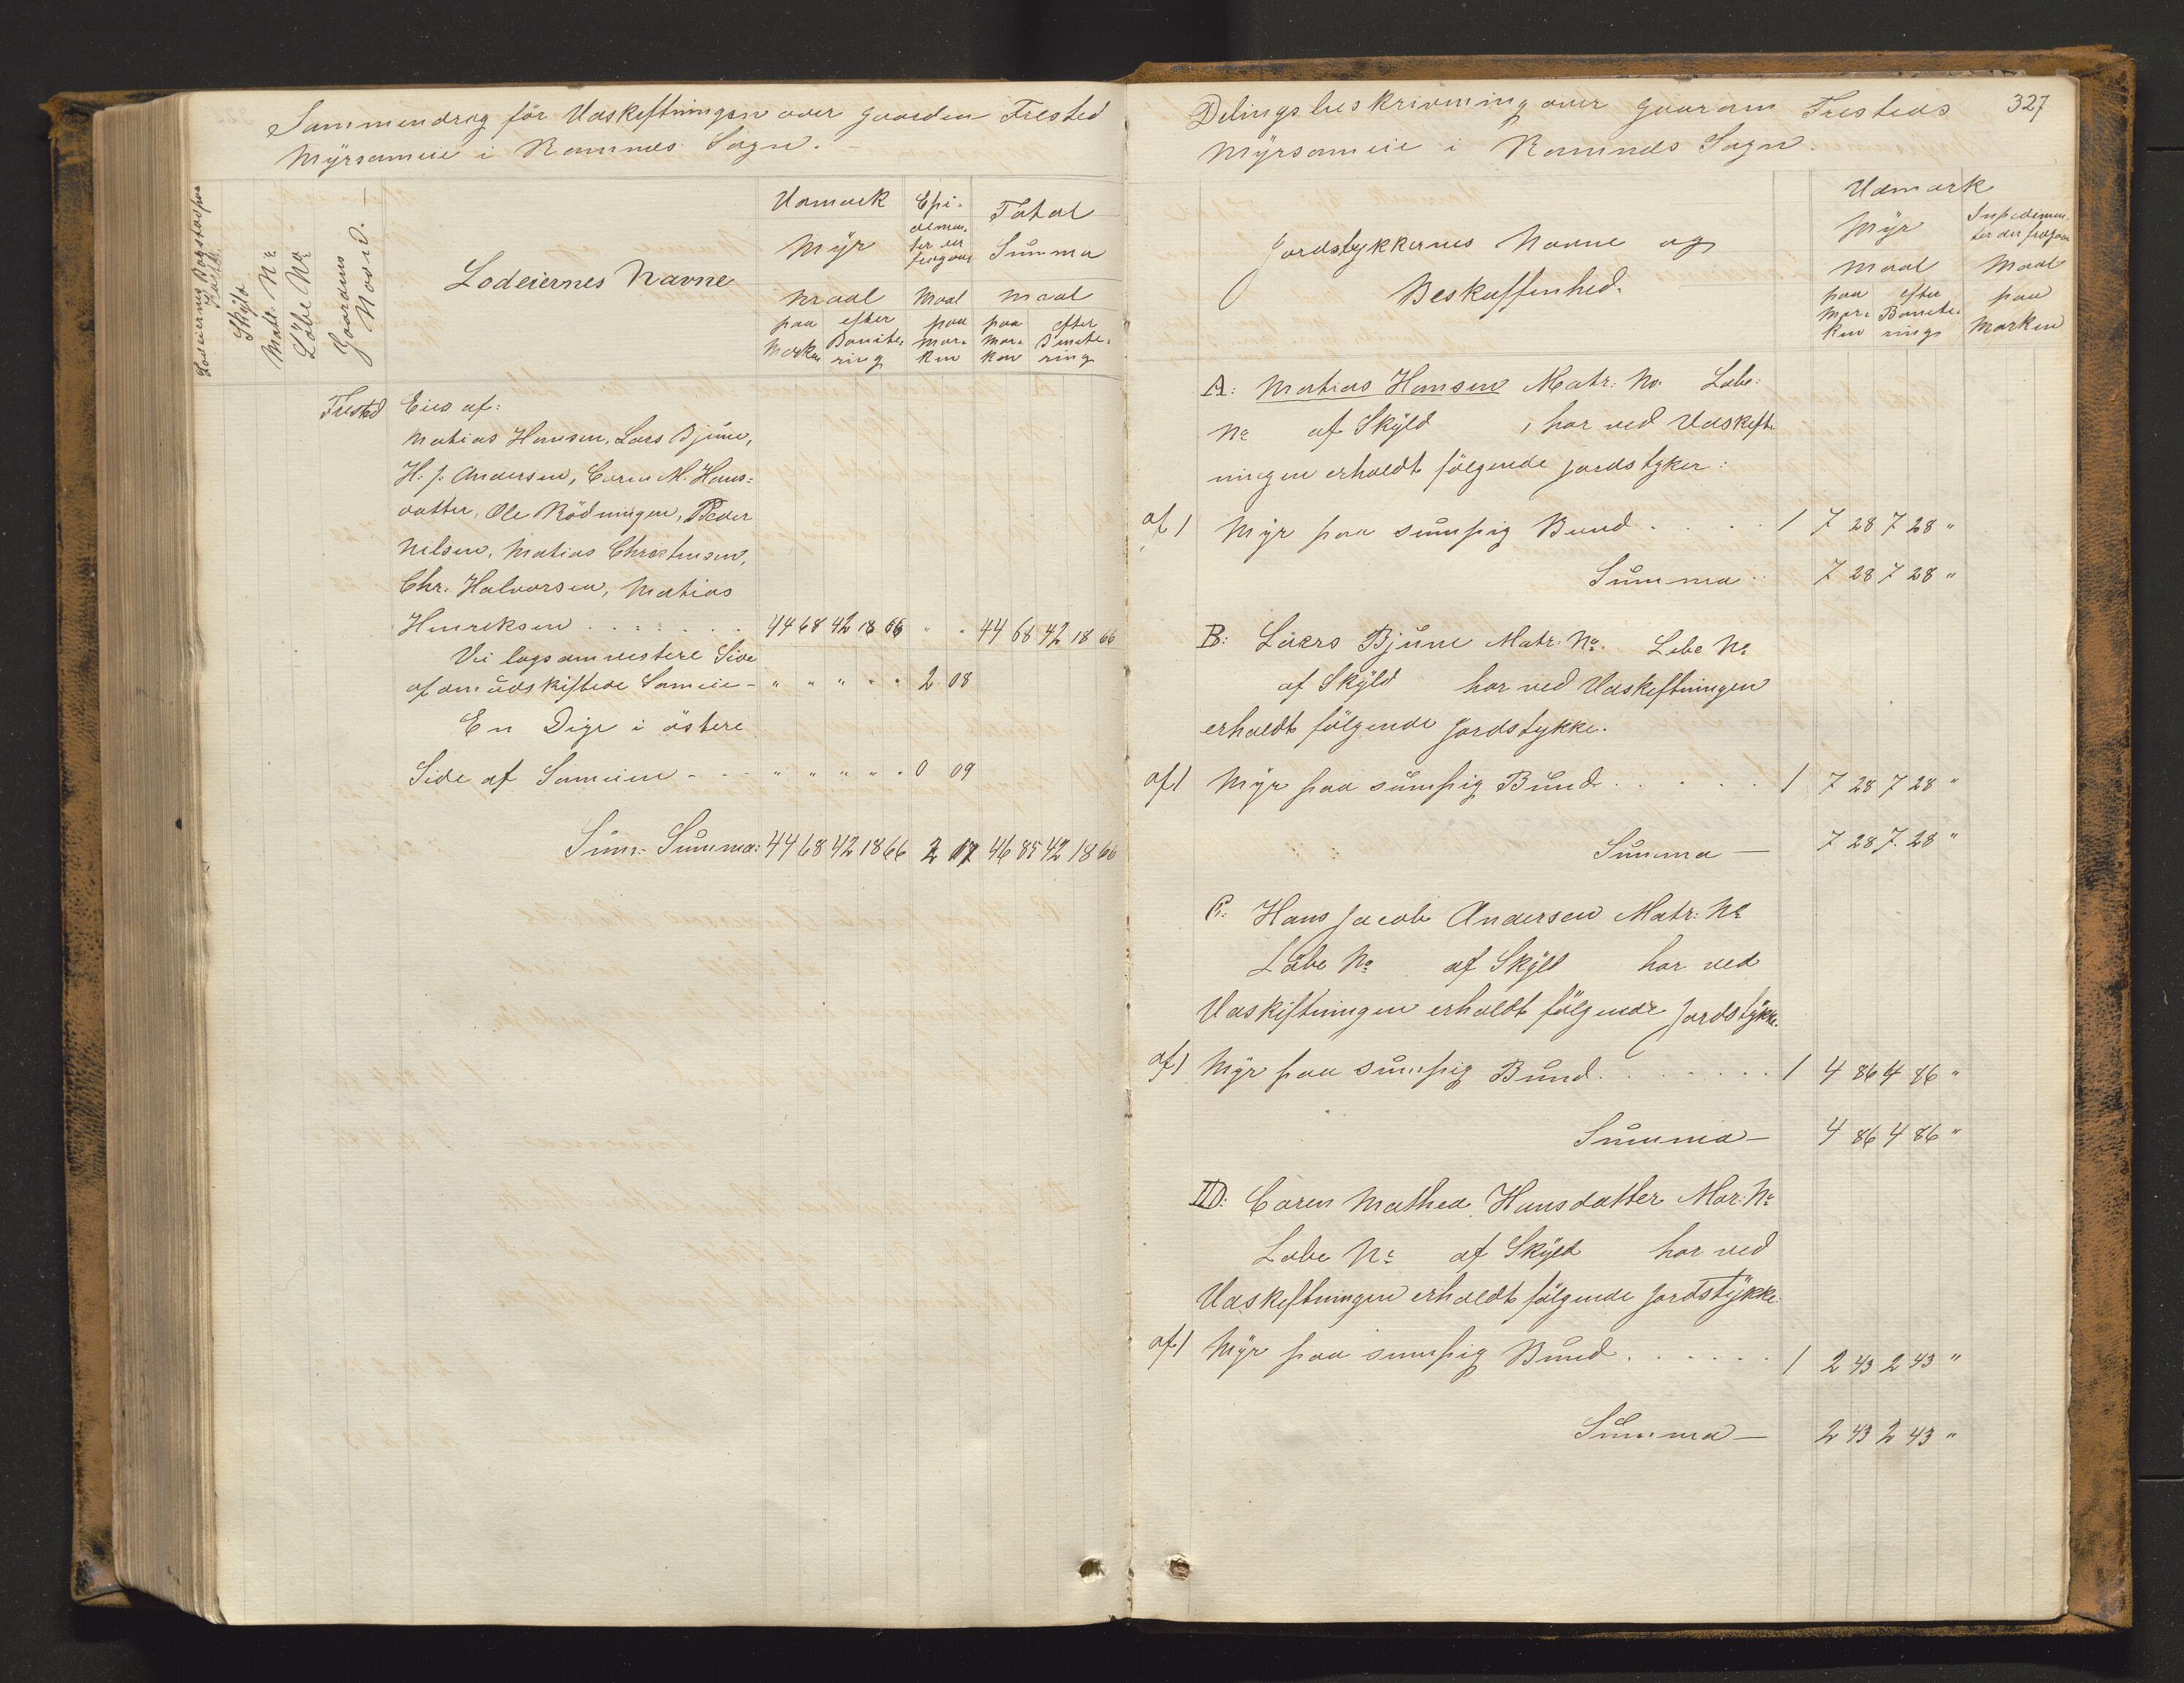 Sammendrag før Udskeftningen over Gaarden Frested
Myrsameie i Ramnæs Sogn.
Lodeiernes Bogstavs
Skyld
Matr. No
Löbe No
Gaardens
Navn.
Lodeiernes Navne
Udmark
Myr
Maal
paa Marken
efter Bonitering
Epidementer der fragaar
Maal
paa Marken
Total
Summa
Maal
paa Marken
efter Bonitering
Frested Eies af:
Matias Hansen, Lars Bjune,
H. J. Andersen, Caren M. Hans=
datter, Ole Rödningen, Peder
Nilsen, Matias Christensen,
Chr. Halvorsen, Matias
Henreksen . . . . . . 44 68 42 18 66 " " 44 68 42 18 66
Vei langs om vestere Side
af om üdskiftede Sameie - " " " " " 2 08
En Dige i östere
Side af Sameien - - - " " " " " 0 09
Sum-Summa: 44 68 42 18 66 2 17 46 85 42 18 66
327
Delingsbeskrivning over Gaarden Fresteds
Myrsameie i Ramnæs Sogn.
Jordstykkernes Navne og
Beskaffenhed.
Udmark
Myr
Maal
paa Marken
efter Bonitering
Inpedimenter der fragaar
Maal
paa
Marken
A: Matias Hansen Matr: No. Løbe:
No af Skyld , har ved Udskeft-
ningen erholdt fölgende Jordstyker:
af 1 Myr paa sumpig Bund . . . . 1 7 28 7 28 "
Summa . . 7 28 7 28 "
B: Laers Bjune Matr: No. Løbe No
af Skyld har ved Udskeftningen
erholdt fölgende Jordstykke.
af 1 Myr paa sumpig Bund . . . . . 1 7 28 7 28 "
Summa — 7 28 7 28 "
C: Hans Jacob Andersen Matr: No
Löbe No af Skyld har ved
Udskiftningen erholdt fölgende Jordstykke.
af 1 Myr paa sumpig Bund . . . . . . . 1 4 86 4 86 "
Summa — 4 86 4 86 "
D: Caren Mathea Hansdatter Mar: No
Løbe No af Skyld har ved
Udskeftningen erholdt fölgende Jordstykke.
af 1 Myr paa sumpig Bund . . . . . . 1 2 43 2 43 "
Summa — 2 43 2 43 "